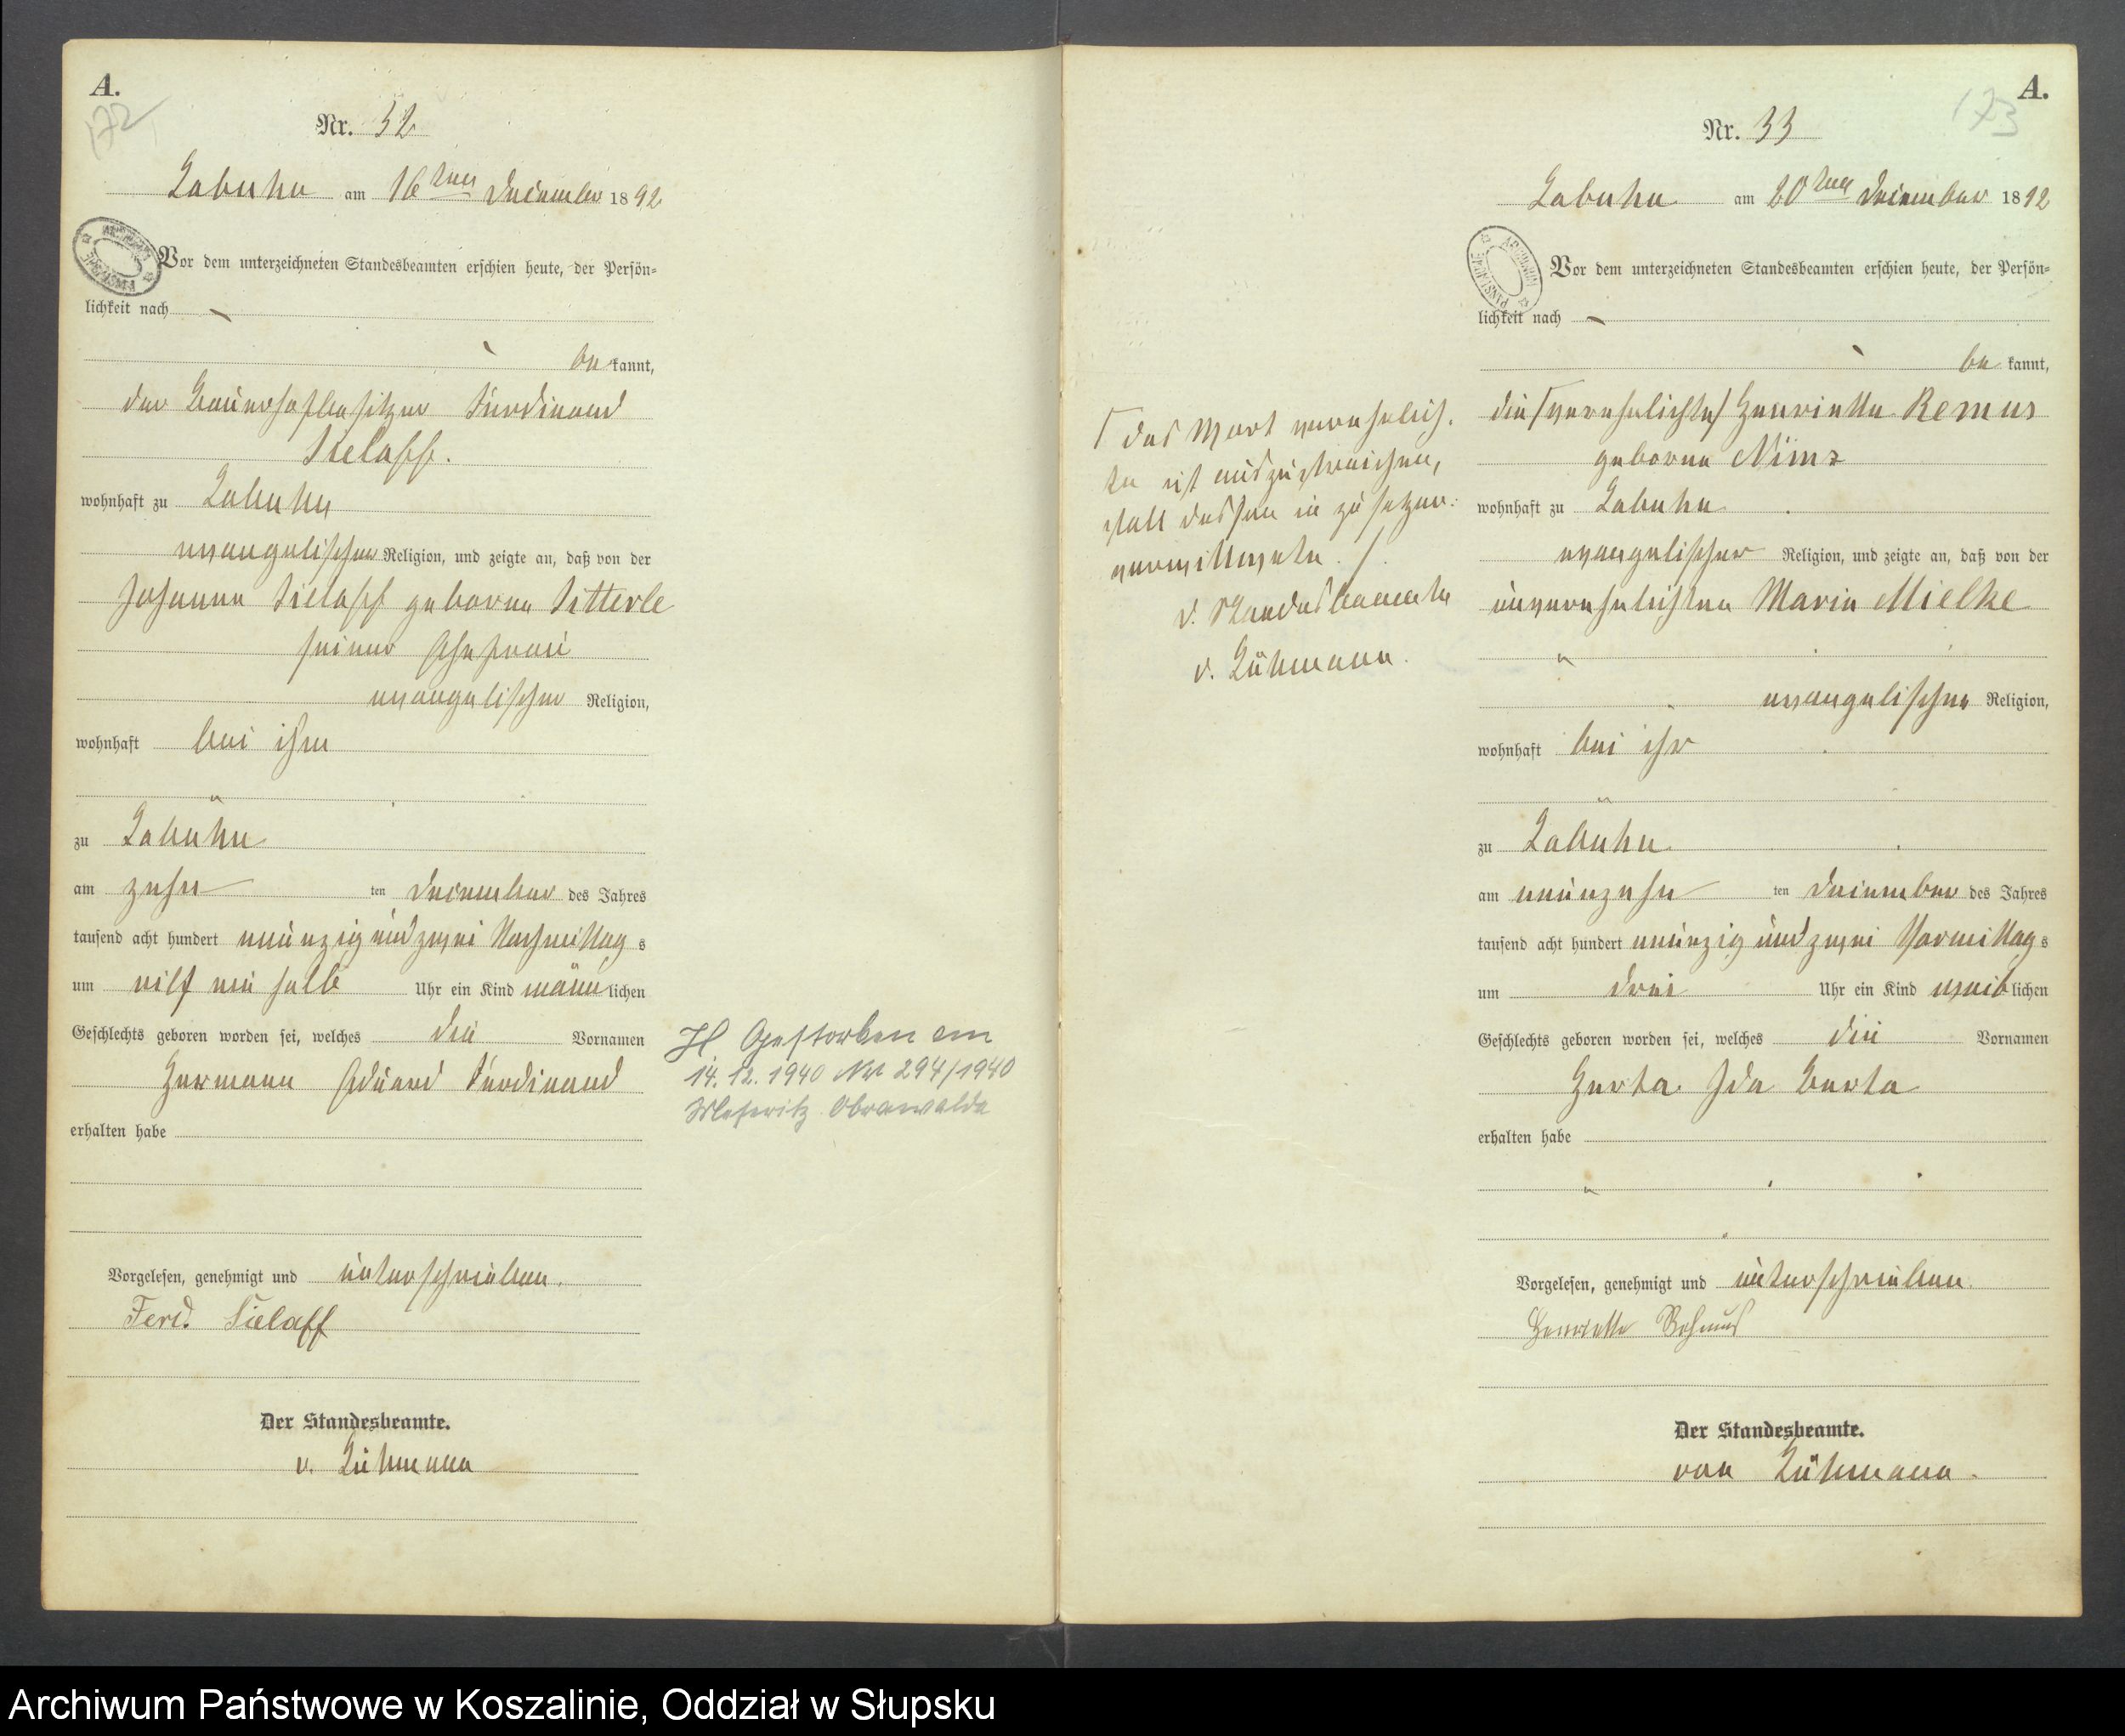 A.
172
Nr. 32
Labuhn am 16ten December 1892
Vor dem unterzeichneten Standesbeamten erschien heute, der Persön-
lichkeit nach
be kannt,
der Bauerhofbesitzer Ferdinand
Sielaff.
wohnhaft zu Labuhn
evangelischer Religion, und zeigte an, daß von der
Johanna Sielaff geborne Sitterle
seiner Ehefrau
evangelischer Religion,
wohnhaft bei ihm
zu Labuhn
am zehn ten December des Jahres
tausend acht hundert neunzig und zwei Nachmittag s
um eilf ein halb Uhr ein Kind männ lichen
Geschlechts geboren worden sei, welches die Vornamen
Hermann Eduard Ferdinand
erhalten habe
H Gestorben am
14. 12. 1940 Nr 294/1940
Meseritz Obrawalde
Vorgelesen, genehmigt und unterschrieben.
Ferd. Sielaff
Der Standesbeamte.
v. Lühmann
A.
173
Nr. 33
Labuhn am 20ten December 1892
ARCHIWUM PAŃSTWOWE
Vor dem unterzeichneten Standesbeamten erschien heute, der Persön-
lichkeit nach
be kannt,
die /verehelichte/ Henriette Remus
geborne Nimz
wohnhaft zu Labuhn
evangelischer Religion, und zeigte an, daß von der
unverehelichten Marie Mielke
evangelischer Religion,
wohnhaft bei ihr
zu Labuhn
am neunzehn ten December des Jahres
tausend acht hundert neunzig und zwei Vormittag s
um drei Uhr ein Kind weib lichen
Geschlechts geboren worden sei, welches die Vornamen
Herta Ida Berta
erhalten habe
Γ das Wort verehelich-
te ist auszustreichen,
statt dessen ist zu setzen:
verwittwete. /.
d. Standesbeamte
v. Lühmann.
Vorgelesen, genehmigt und unterschrieben.
Henriette Rehmus
Der Standesbeamte.
von Lühmann.
Archiwum Państwowe w Koszalinie, Oddział w Słupsku